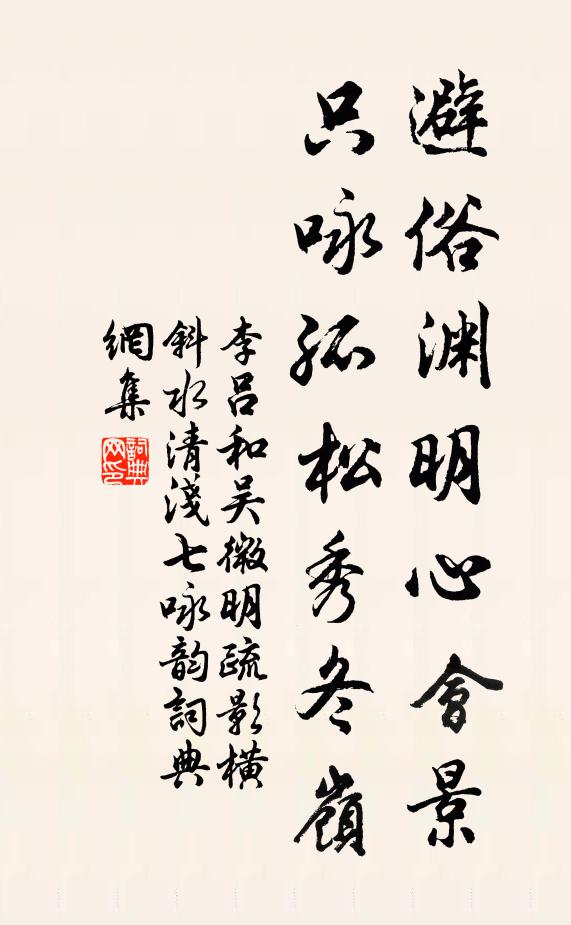 避俗渊明心會景
只咏孤松秀冬嶺
李呂和吴微明疏影橫
斜水清淺七咏韵詞典
網集
詞典
网印